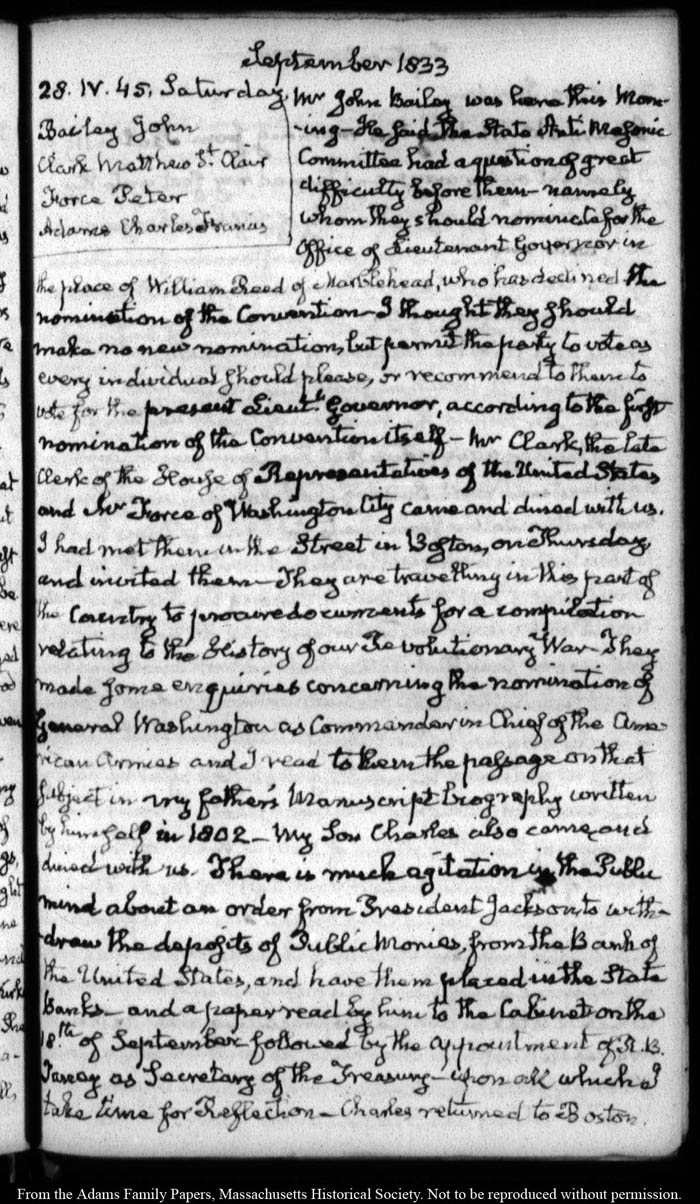 September 1833
28. IV. 45. Saturday.
Bailey John
Clark Matthew St. Clair
Force Peter
Adams Charles Francis
Mr John Bailey was here this Morn-
-ing - He said the State Anti Masonic
Committee had a question of great
difficulty before them - namely
whom they should nominate for the
Office of Lieutenant Governor in
the place of William Reed of Marblehead, who has declined the
nomination of the Convention - I thought they should
make no new nomination, but permit the party to vote as
every individual should please, or recommend to them to
vote for the present Lieutt. Governor, according to the first
nomination of the Convention itself - Mr Clark, the late
Clerk of the House of Representatives of the United States
and Mr Force of Washington City came and dined with us.
I had met them in the Street in Boston, on Thursday,
and invited them - They are travelling in this part of
the Country to procure documents for a compilation
relating to the History of our Revolutionary War - They
made some enquiries concerning the nomination of
General Washington as Commander in Chief of the Ame-
rican Armies and I read to them the passage on that
subject in my father's Manuscript biography written
by himself in 1802 - My Son Charles also came and
dined with us. There is much agitation in the Public
mind about an order from President Jackson to with-
-draw the deposits of Public Monies, from the Bank of
the United States, and have them placed in the State
Banks - and a paper read by him to the Cabinet on the
18th of September followed by the appointment of R. B.
Taney as Secretary of the Treasury - upon all which I
take time for Reflection - Charles returned to Boston.
From the Adams Family Papers, Massachusetts Historical Society. Not to be reproduced without permission.